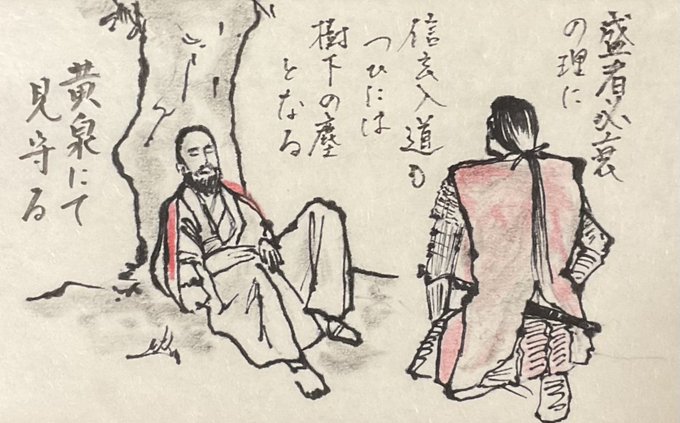 盛者必衰
の理に
信玄入道も
つひには
樹下の塵
となる
黄泉にて
見守る